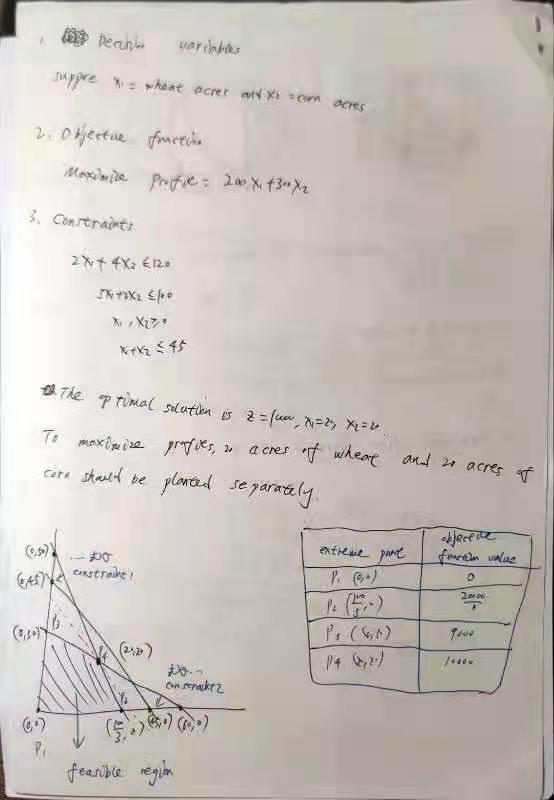 1. Decision variables
suppse x₁ = wheat acres and x₂ = corn acres
2. Objective function
Maximize Profit = 200x₁+300x₂
3. Constraints
2x₁+4x₂ ≤120
3x₁+2x₂ ≤100
x₁, x₂≥0
x₁+x₂ ≤45
The optimal solution is z=10000, x₁=20, x₂=20
To maximize profits, 20 acres of wheat and 20 acres of
corn should be planted separately.
(0,50)
constraint1
(0,45)
(0,30)
P3
P4
(20,20)
constraint2
P2
(0,0)
(100/3, 0)
(45,0)
(60,0)
P1
feasible region
extreme point
objective function value
P1 (0,0)
0
P2 (100/3, 0)
20000/3
P3
9000
P4
10000